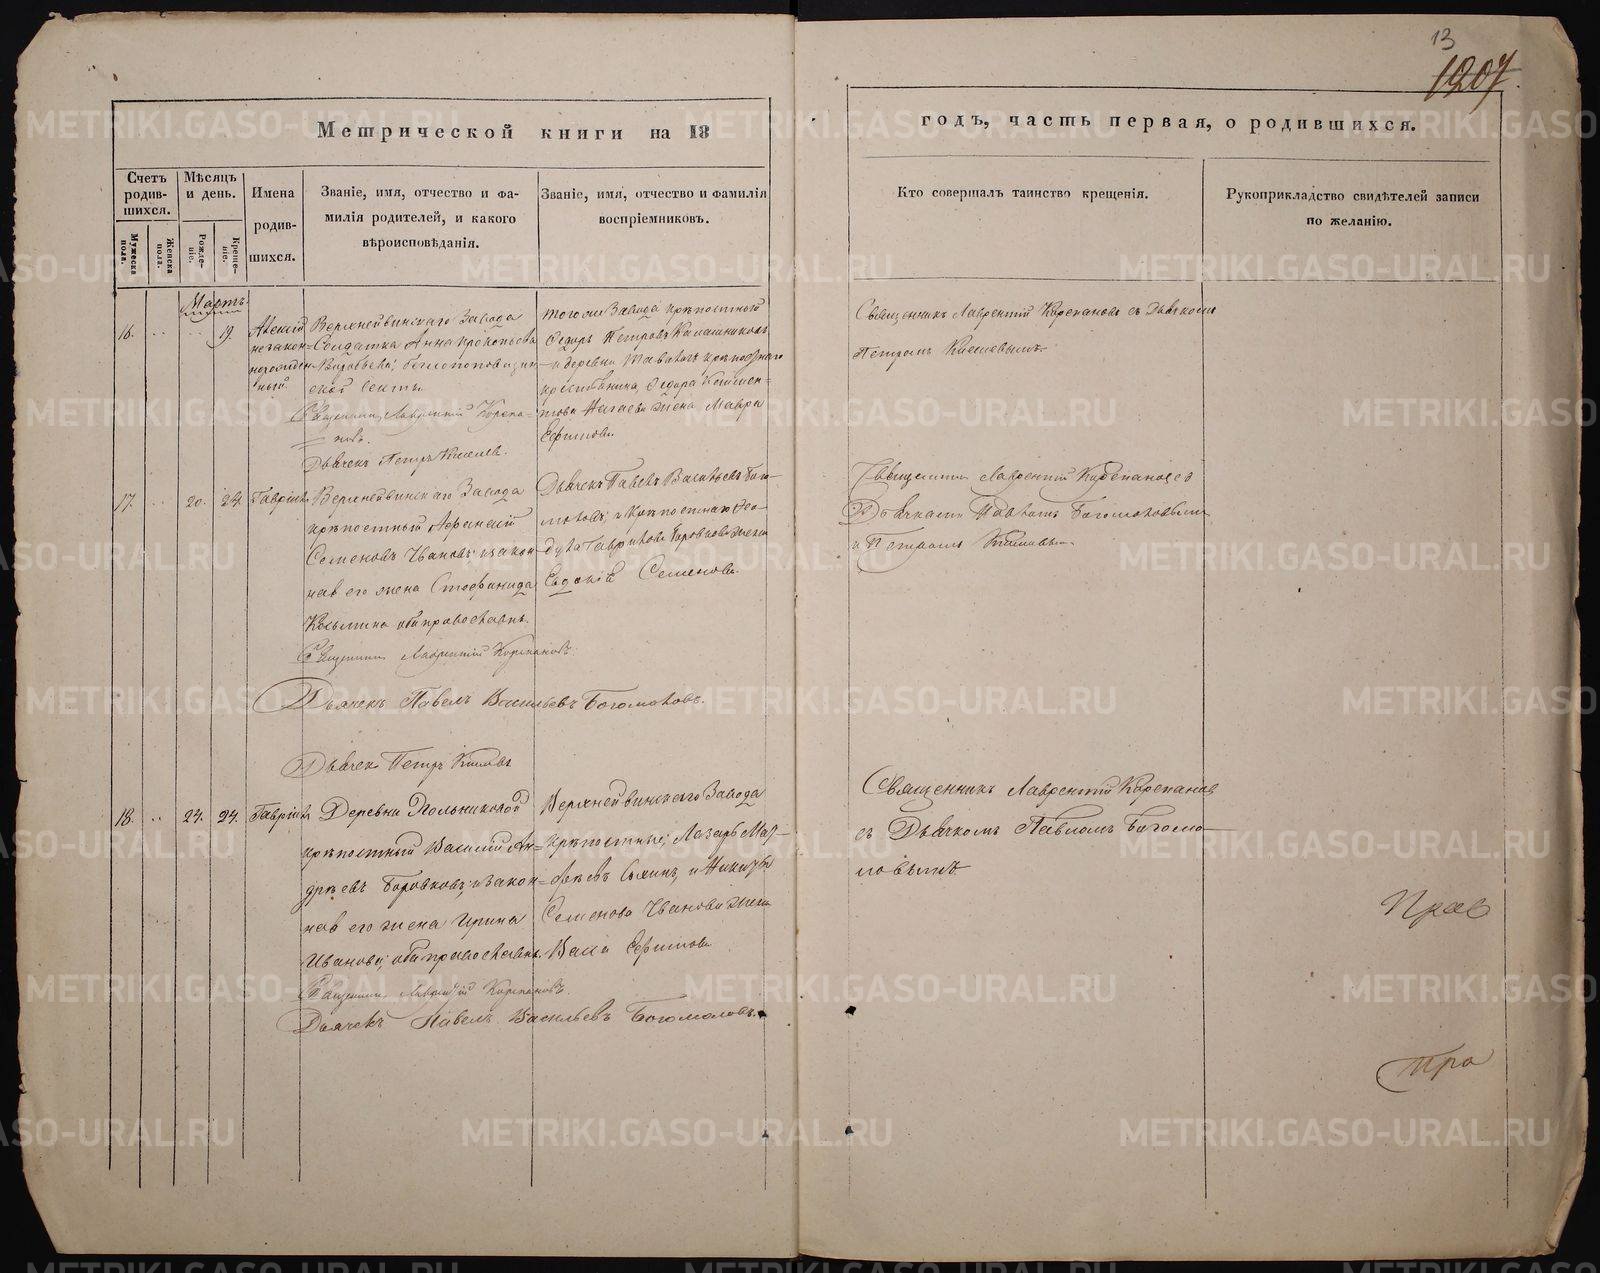 13
1207
Метрической книги на 18
годъ, часть первая, о родившихся.
Счетъ родившихся.
Мѣсяцъ и день.
Имена родившихся.
Званіе, имя, отчество и фамилія родителей, и какого вѣроисповѣданія.
Званіе, имя, отчество и фамилія воспріемниковъ.
Кто совершалъ таинство крещенія.
Рукоприкладство свидѣтелей записи по желанію.
Мужеска пола.
Женска пола.
Рожденіе.
Крещеніе.
Мартъ.
16.
19.
Алексій
незакон-
норожден-
ный.
Верхнейвинскаго Завода
Солдатка Анна Прокопьева
ской секты.
Священник Лаврентій Корепа-
новъ.
Дьячекъ Петръ Киселев.
тогоже Завода крѣпостный
Федоръ Петровъ Калашниковъ
и деревни
Федора
жена Мавра
Ефимова
Священникъ Лаврентій Корепановъ съ Дьячкомъ
Петромъ Киселевымъ.
17.
20.
24.
Гавріилъ
Верхнейвинскаго Завода
крѣпостный Афанасій
Семеновъ Ивановъ; и закон-
ная его жена Стефанида
Козьмина оба православн.
Священник Лаврентій Корепановъ.
Дьячекъ Павелъ Васильевъ Богомоловъ.
Дьячекъ Петръ
Дьячекъ Павелъ Васильевъ Бого-
моловъ; и крѣпостнаго
Гаврилова Боровкова жена
Евдокія Семенова.
Священникъ Лаврентій Корепановъ съ
Дьячками Павломъ Богомоловымъ
и Петромъ
18.
24.
24.
Гавріилъ
Деревни
крѣпостный Василій Ан-
дреевъ Боровковъ; и закон-
ная его жена Ирина
Иванова; оба православн.
Священник Лаврентій Корепановъ.
Дьячекъ Павелъ Васильевъ Богомоловъ.
Верхнейвинскаго Завода
крѣпостные; Лазарь Мат-
вѣевъ и Никиты
Семенова Иванова жена
Васса Ефимова
Священникъ Лаврентій Корепановъ
съ Дьячкомъ Павломъ Богомо-
ловымъ
Прав
Пра
METRIKI.GASO-URAL.RU